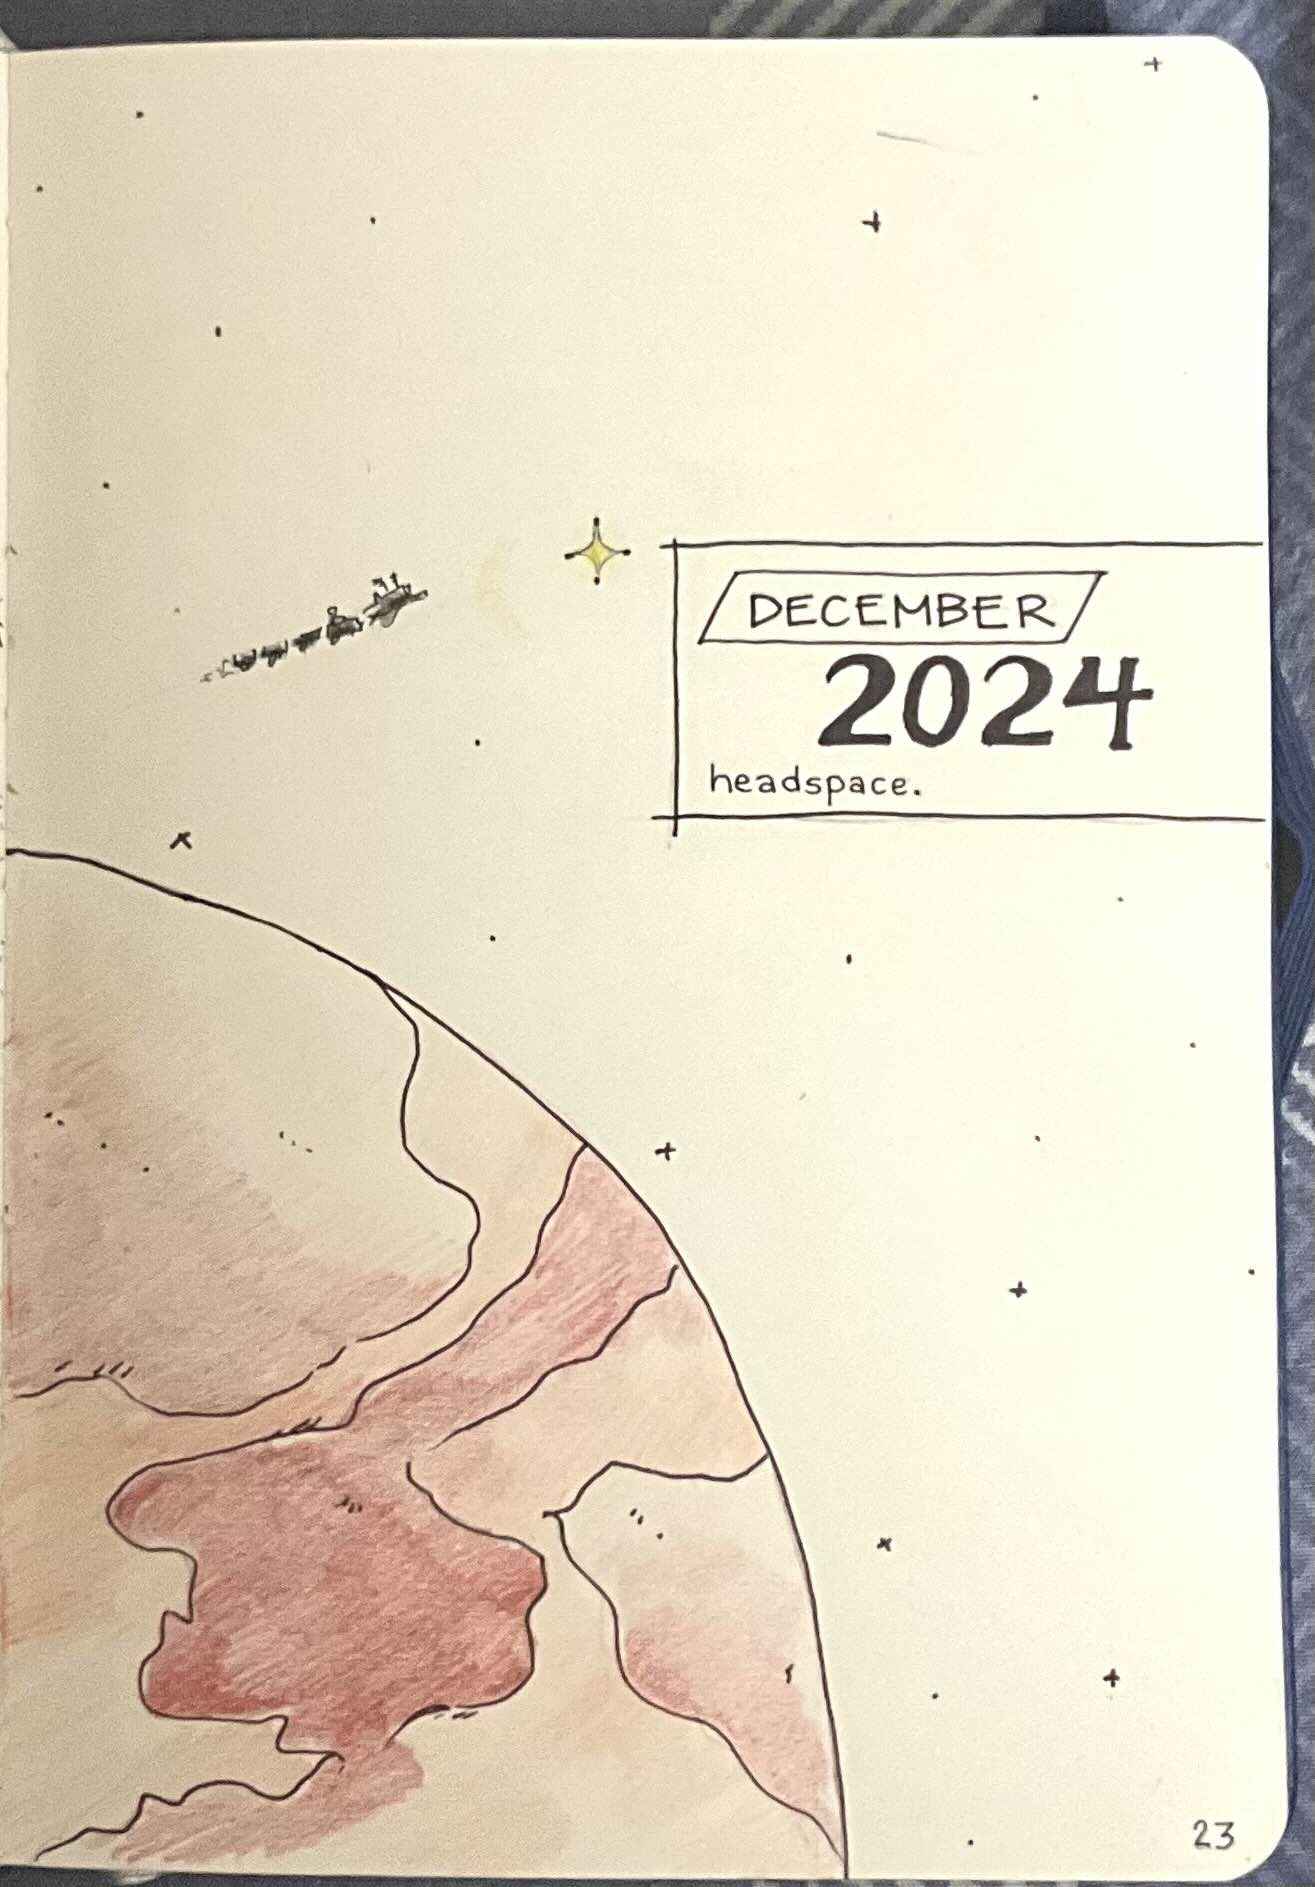 DECEMBER
2024
headspace.
23